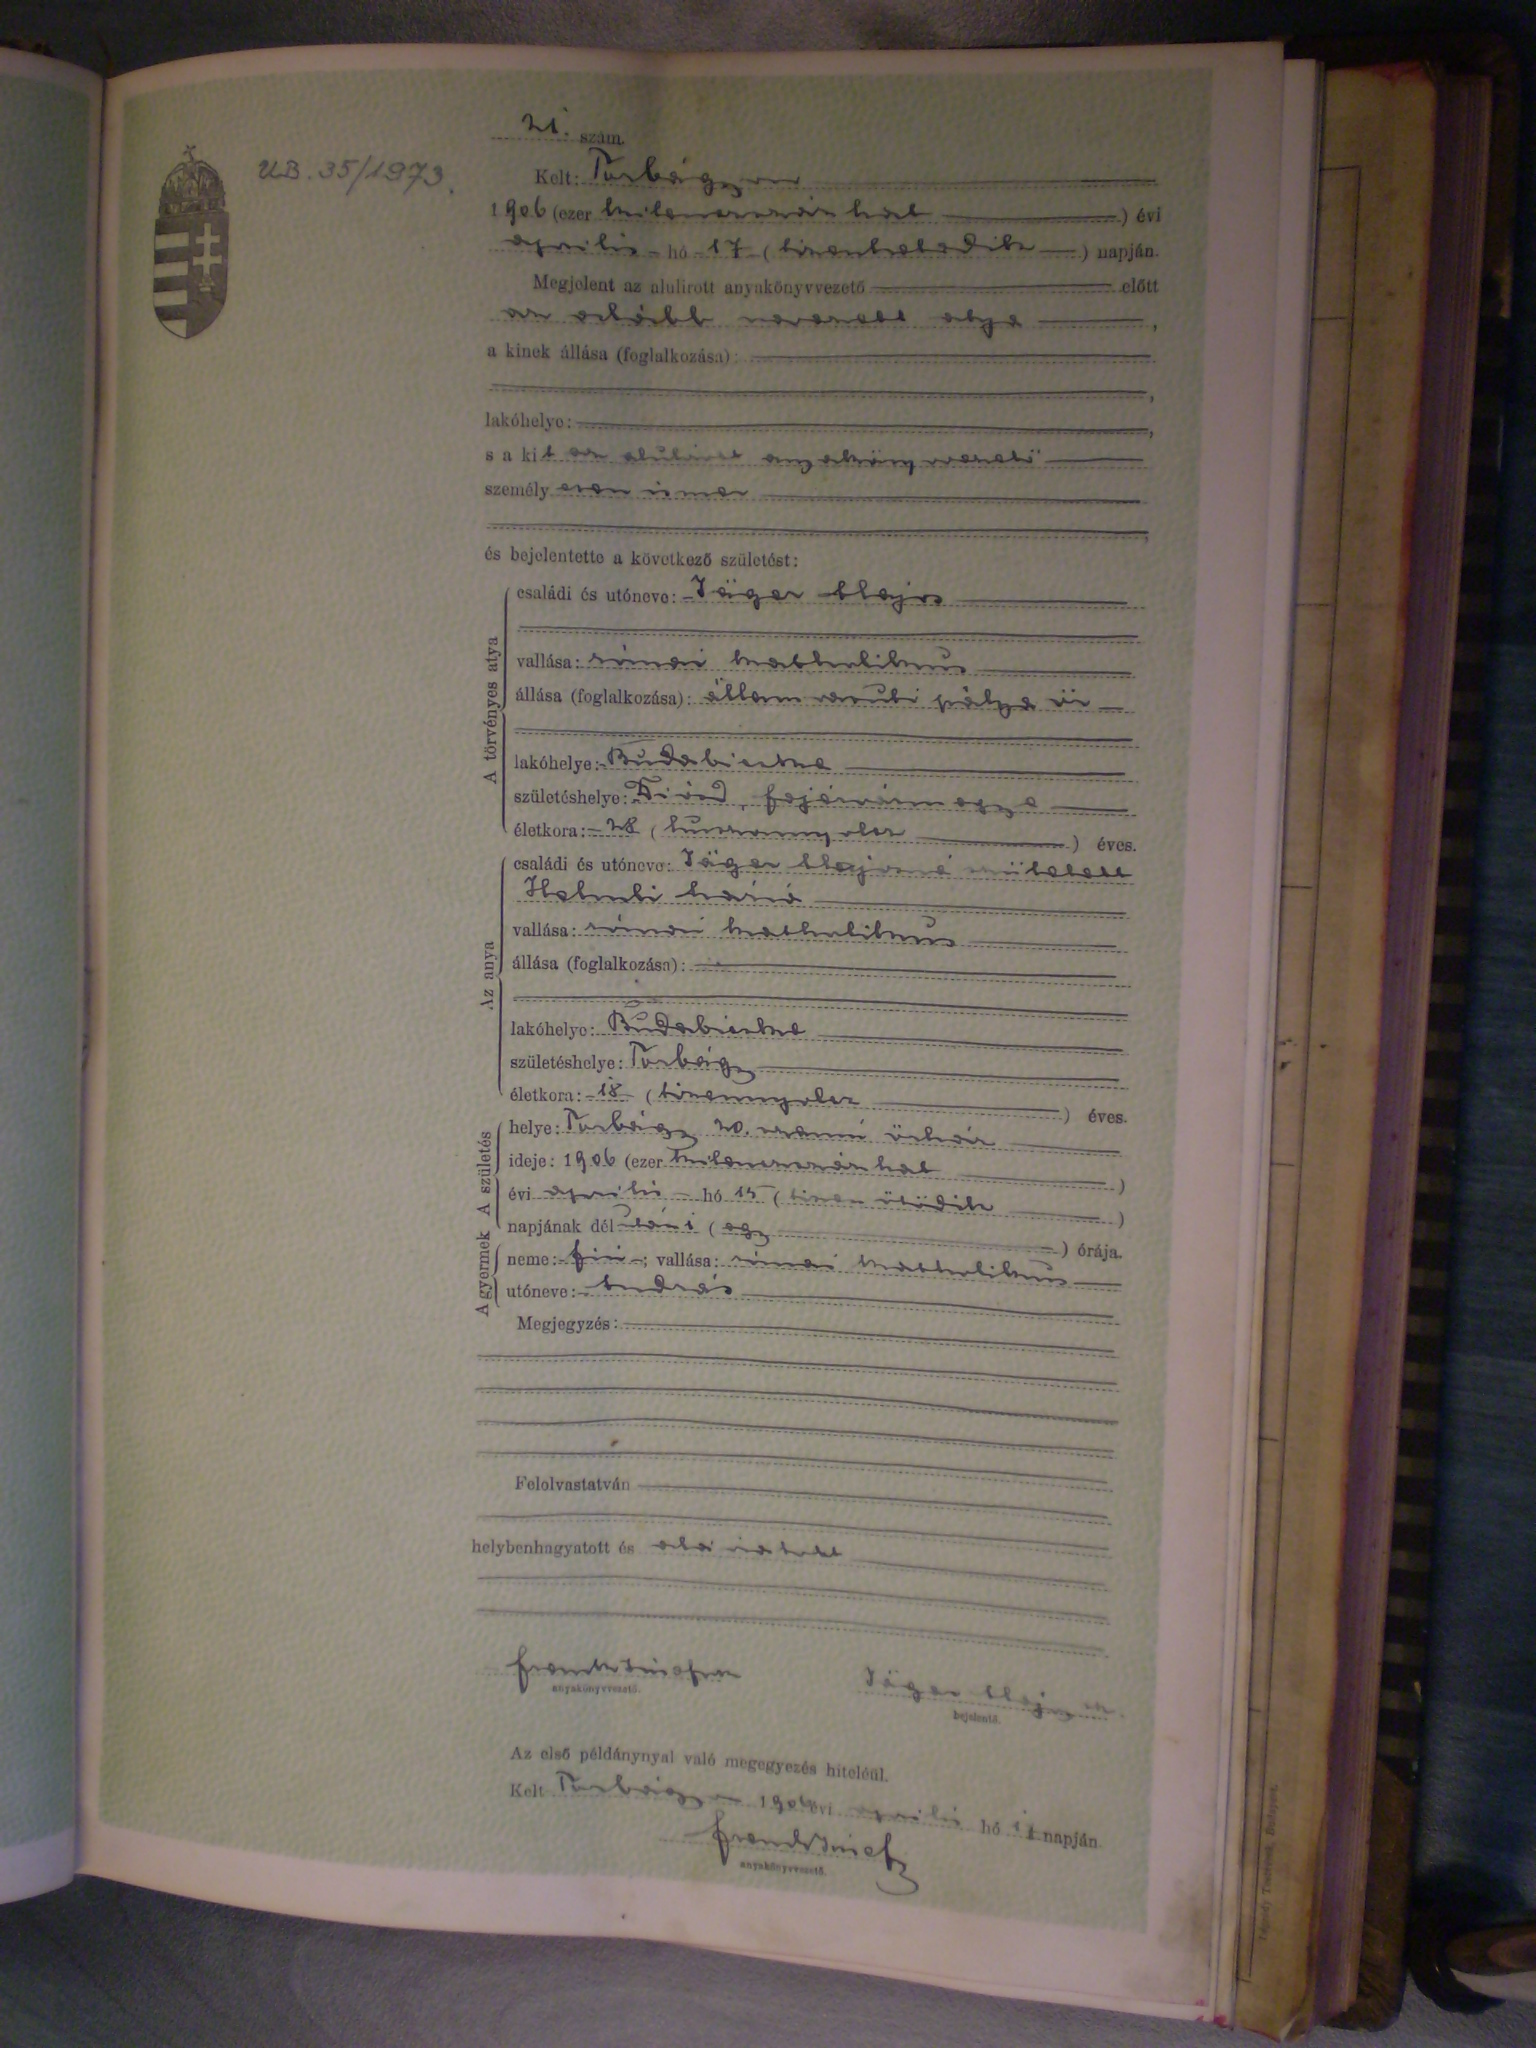 UB. 35/1973.
21. szám.
Kelt: Torbágyon
1906 (ezer kilenczszázhat) évi
április hó 17 (tizenhetedik) napján.
Megjelent az alulirott anyakönyvvezető előtt
az alább nevezett atya,
a kinek állása (foglalkozása):
lakóhelye:
s a kit az alulirott anyakönyvvezető
személyesen ismer
és bejelentette a következő születést:
A törvényes atya
családi és utóneve: Jäger Alajos
vallása: római katholikus
állása (foglalkozása): állam vasuti pálya őr
lakóhelye: Budabicske
születéshelye: fejérvármegye
életkora: 28 (huszonnyolcz) éves.
Az anya
családi és utóneve: Jäger Alajosné született
Mária
vallása: római katholikus
állása (foglalkozása):
lakóhelye: Budabicske
születéshelye: Torbágy
életkora: 18 (tizennyolcz) éves.
A születés
helye: Torbágy 20. számú őrház
ideje: 1906 (ezer kilenczszázhat)
évi április hó 15 (tizenötödik)
napjának délutáni (egy) órája.
A gyermek
neme: fiú; vallása: római katholikus
utóneve: András
Megjegyzés:
Felolvastatván
helybenhagyatott és aláiratott
anyakönyvvezető.
Jäger Alajos
bejelentő.
Az első példánynyal való megegyezés hiteléül.
Kelt Torbágyon 1906 évi április hó 17 napján
anyakönyvvezető.